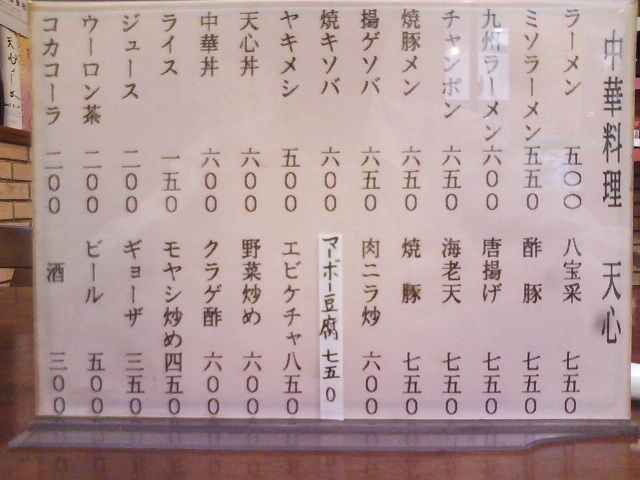 中華料理　天心
ラーメン　五〇〇
ミソラーメン　五五〇
九州ラーメン　六〇〇
チャンポン　六五〇
焼豚メン　六五〇
揚ゲソバ　六五〇
焼キソバ　六〇〇
ヤキメシ　五〇〇
天心丼　六〇〇
中華丼　六〇〇
ライス　一五〇
ジュース　二〇〇
ウーロン茶　二〇〇
コカコーラ　二〇〇
八宝采　七五〇
酢豚　七五〇
唐揚げ　七五〇
海老天　七五〇
焼豚　七五〇
肉ニラ炒　六〇〇
マーボー豆腐　七五〇
エビケチャ　八五〇
野菜炒め　六〇〇
クラゲ酢　六〇〇
モヤシ炒め　四五〇
ギョーザ　三五〇
ビール　五〇〇
酒　三〇〇